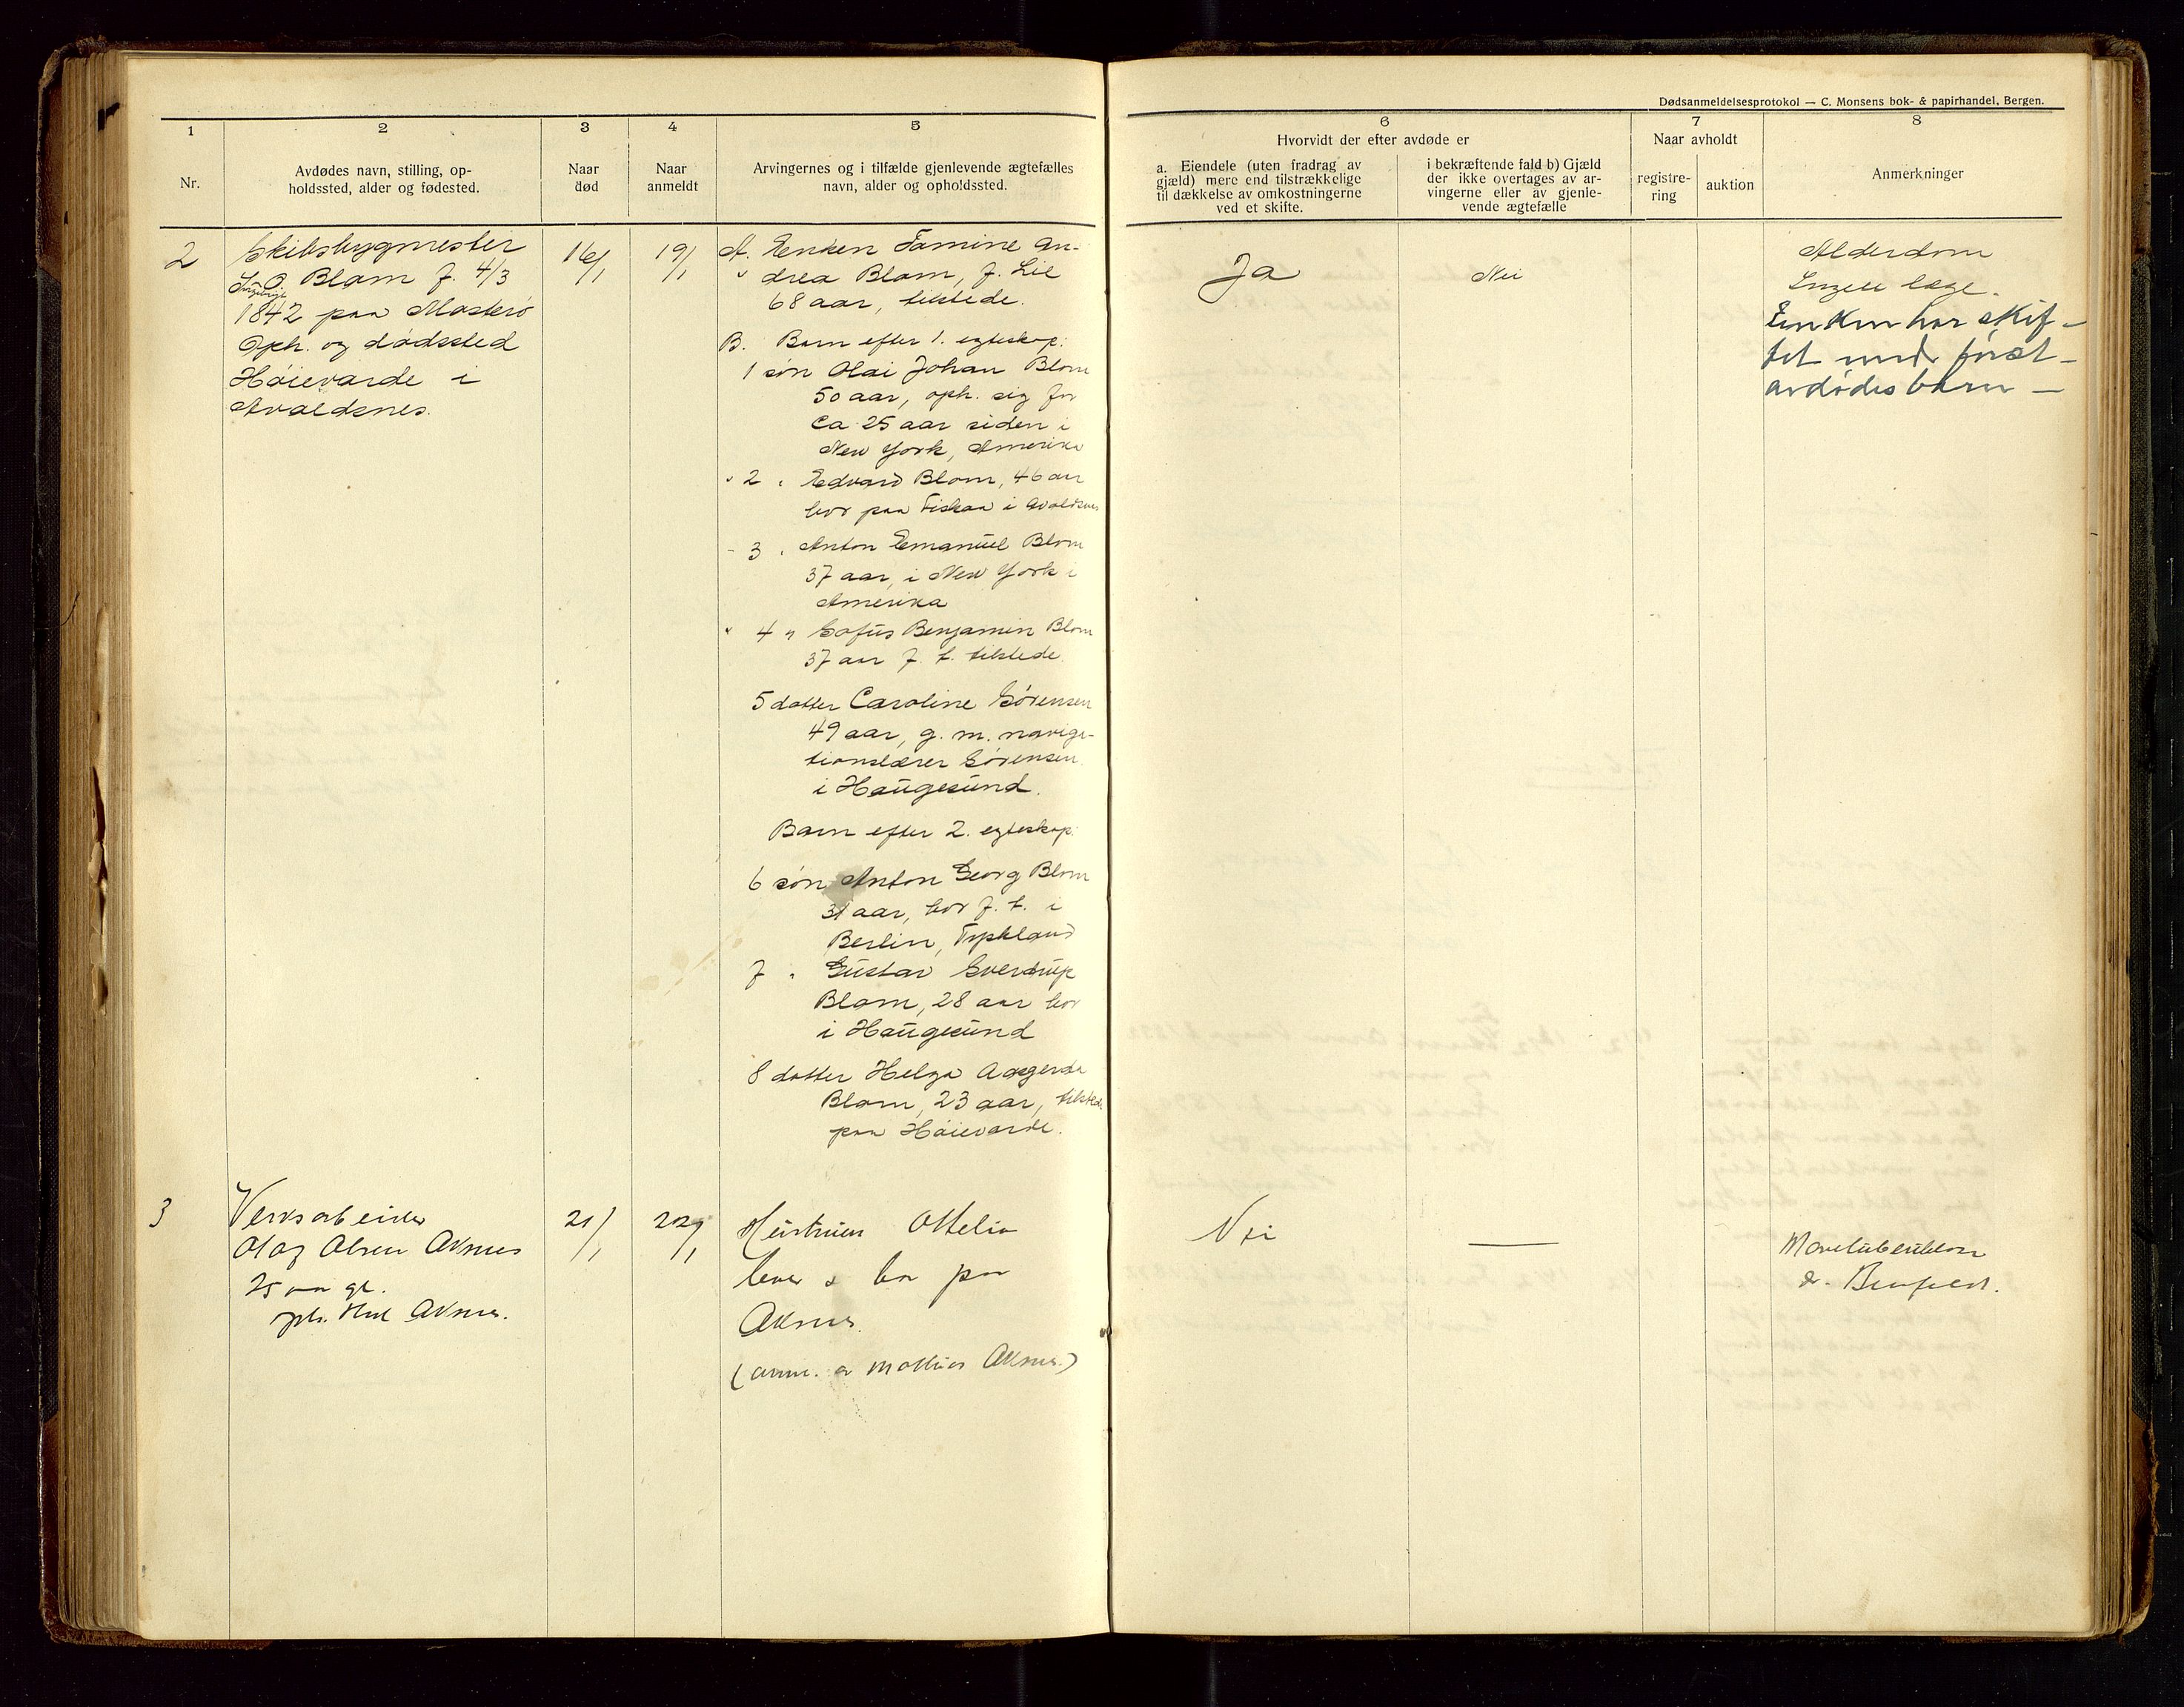 Dødsanmeldelsesprotokol — C. Monsens bok- & papirhandel, Bergen.
1
2
3
4
5
6
7
8
Nr.
Avdødes navn, stilling, op-
holdssted, alder og fødested.
Naar
død
Naar
anmeldt
Arvingernes og i tilfælde gjenlevende ægtefælles
navn, alder og opholdssted.
Hvorvidt der efter avdøde er
a. Eiendele (uten fradrag av
gjæld) mere end tilstrækkelige
til dækkelse av omkostningerne
ved et skifte.
i bekræftende fald b) Gjæld
der ikke overtages av ar-
vingerne eller av gjenle-
vende ægtefælle
Naar avholdt
registre-
ring
auktion
Anmerkninger
2
Skibsbygmester
O. Blom f. 4/3
1842 paa Mosterø
Oph. og dødssted
Høievarde i
Avaldsnes.
16/1
19/1
A. Enken Tomine An-
drea Blom, f. Lie
68 aar, tilstede.
B. Barn efter 1. egteskap:
1 søn Olai Johan Blom
50 aar, oph. sig for
ca 25 aar siden i
New York, Amerika
" 2 " Edvard Blom, 46 aar
bor paa Fiskaa i Avaldsnes
- 3 " Anton Emanuel Blom
37 aar, i New York i
Amerika
" 4 " Sofus Benjamin Blom
37 aar f. t. tilstede
5 datter Caroline Sørensen
49 aar, g. m. naviga-
tionslærer Sørensen
i Haugesund.
Barn efter 2. egteskap:
6 søn Anton Georg Blom
31 aar, bor f. t. i
Berlin, Tyskland
7 " Gustav Sverdrup
Blom, 28 aar bor
i Haugesund
8 datter Helga Aagerda
Blom, 23 aar, tilstede
paa Høievarde.
Ja
Nei
Alderdom
Ingen læge.
Enken har skif-
tet med først-
avdødes barn —
3
Verksarbeider
Olaf Olsen Aksnes
25 aar gl.
Aksnes.
21/1
22/1
Hustruen Ottelia
lever & bor paa
Aksnes.
(anm. av Mathias Aksnes.)
Nei
—